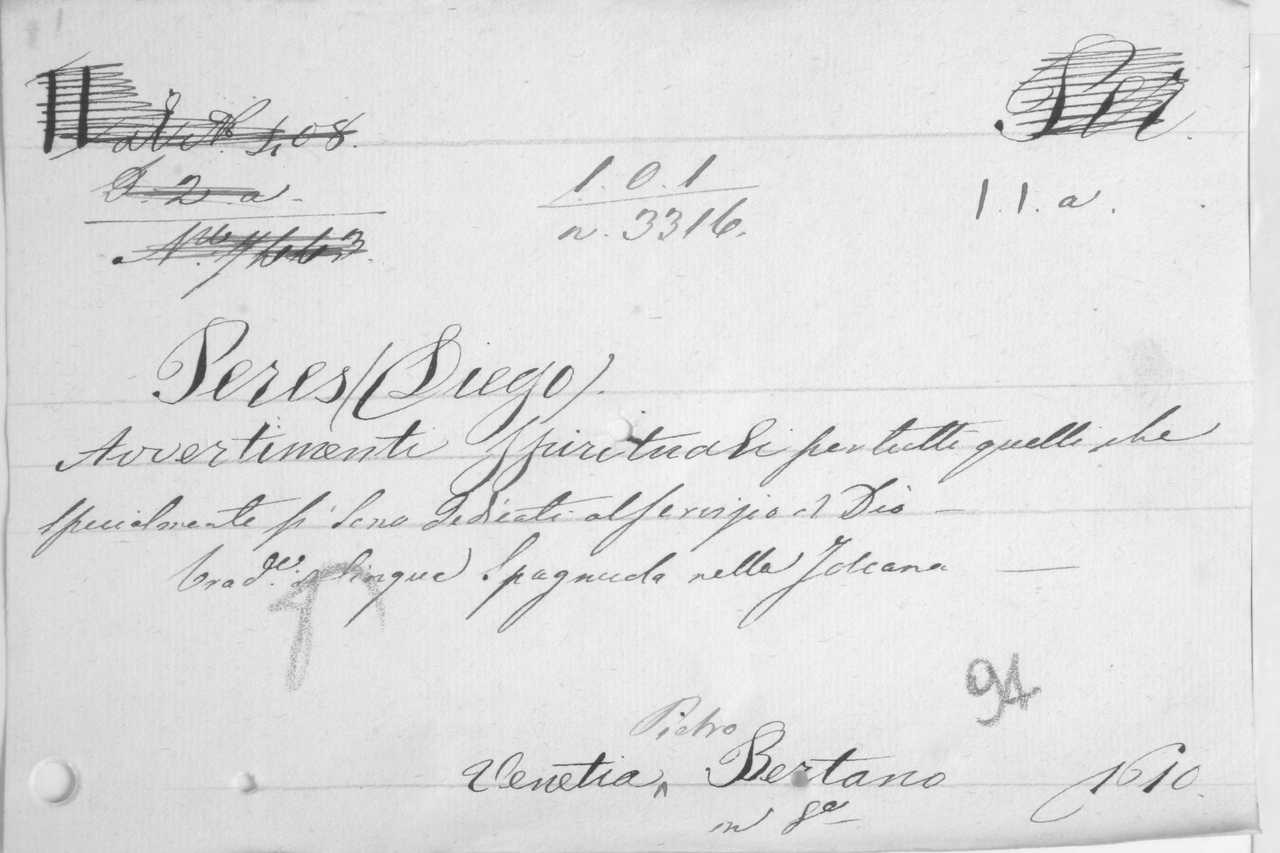 Per
P. 2. a
1. 0. 1
n. 3316.
1. 1. a.
Peres (Diego).
Avvertimenti spirituali per tutti quelli che
specialmente si sono dedicati al servizio di Dio —
trad.e lingua Spagnuola nella Tolcana —
94
Pietro
Venetia, Bertano 1610.
in 8°